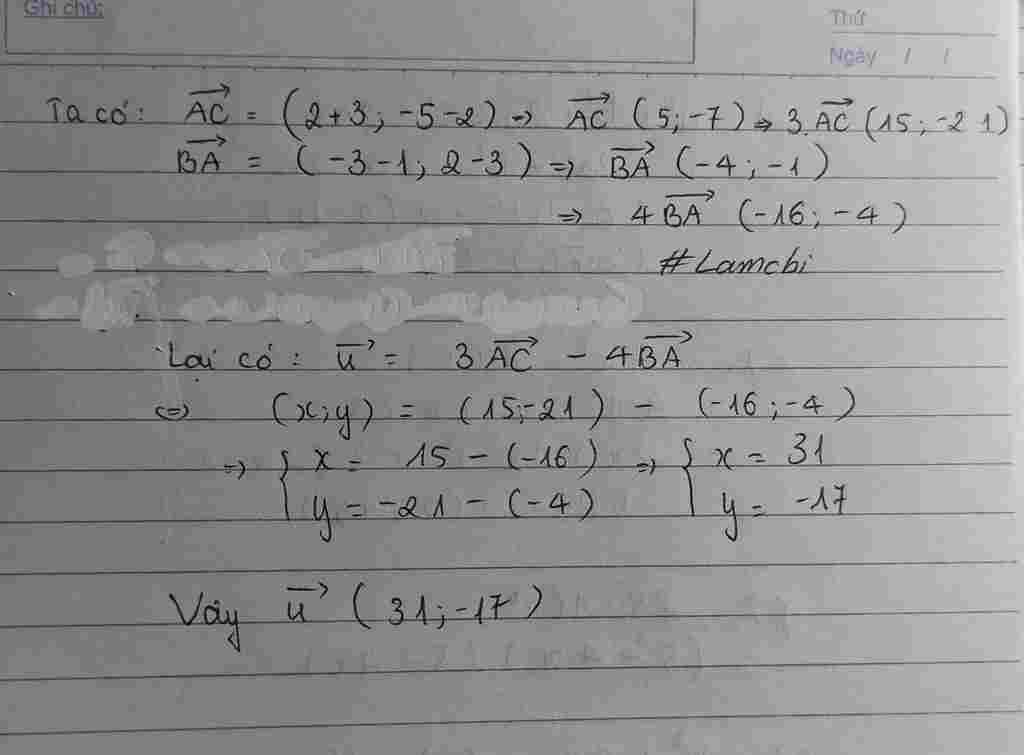 Ghi chú:
Thứ
Ngày / /
Ta có: AC→ = (2+3; -5-2) → AC→ (5; -7) ⇒ 3.AC→ (15; -21)
BA→ = (-3-1; 2-3) ⇒ BA→ (-4; -1)
⇒ 4BA→ (-16; -4)
#Lamchi
Lại có: u→ = 3AC→ - 4BA→
⇔ (x;y) = (15;-21) - (-16;-4)
⇒ { x = 15 - (-16) ⇒ { x = 31
y = -21 - (-4) y = -17
Vây u→ (31;-17)